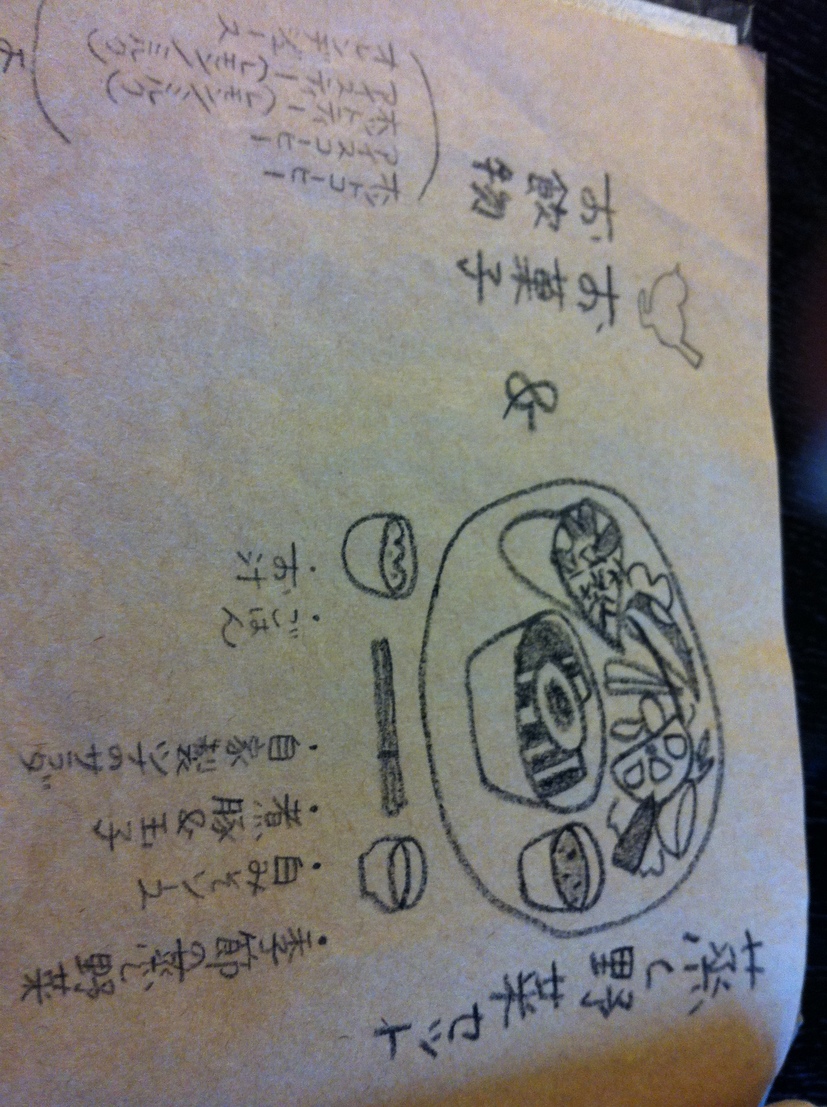 蒸し野菜セット
・季節の蒸し野菜
・白みそソース
・煮豚&玉子
・自家製ツナのサラダ
・ごはん
・お汁
&
お菓子
お飲物
ホットコーヒー
アイスコーヒー
ホットティー(レモン/ミルク)
アイスティー(レモン/ミルク)
オレンジジュース